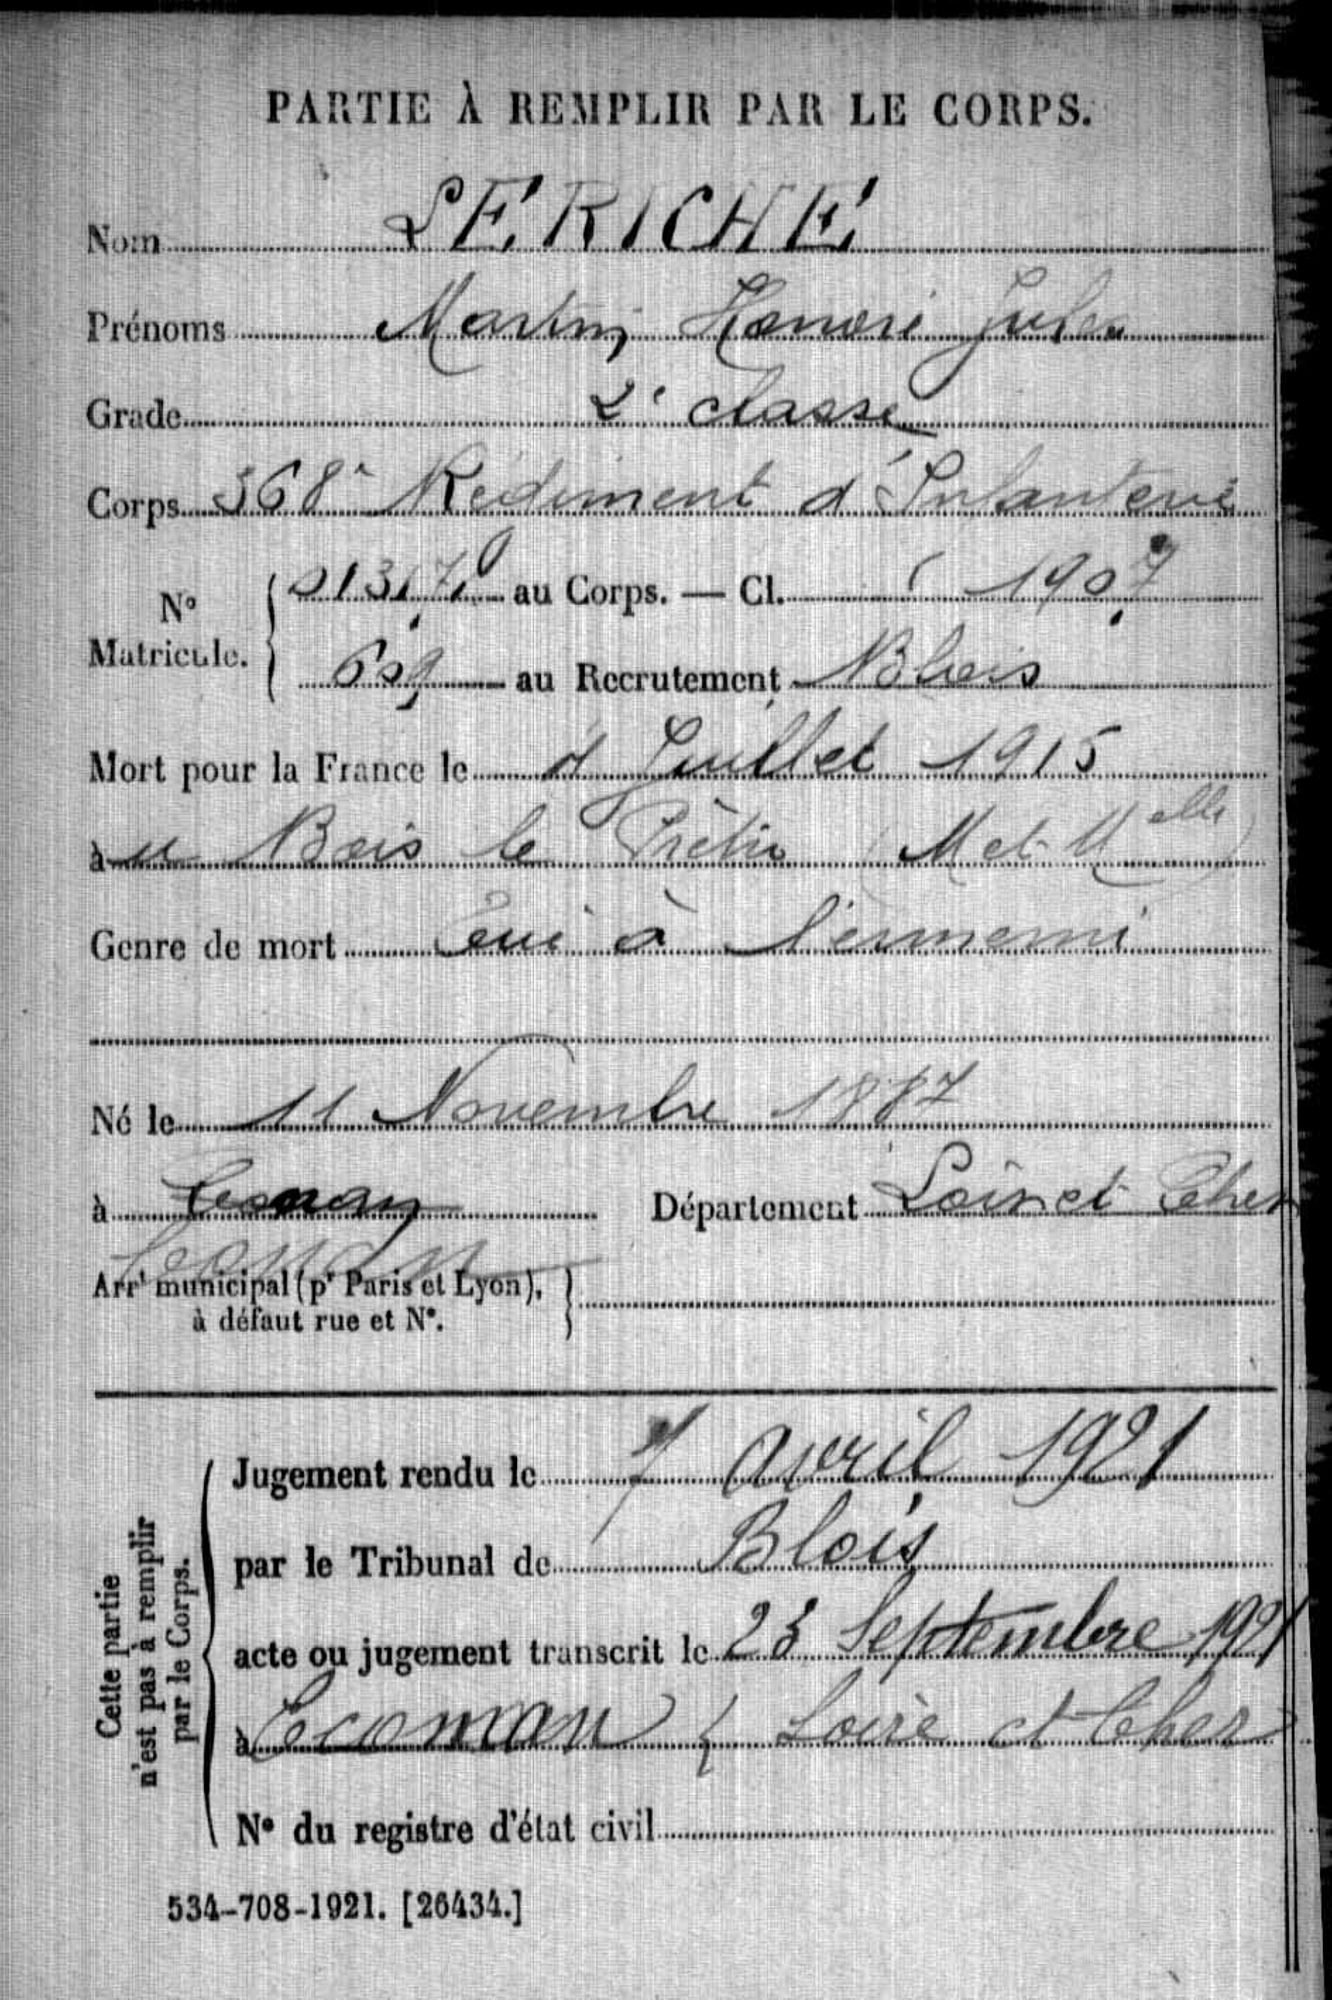 PARTIE À REMPLIR PAR LE CORPS.
Nom LERICHE
Prénoms Martin, Honoré Jules
Grade 2e classe
Corps 368e Régiment d'Infanterie
No Matricule. { 01370 au Corps. — Cl. 1907
609 au Recrutement Blois
Mort pour la France le 4 Juillet 1915
à u Bois le Prêtre (M et Melle)
Genre de mort Tué à l'ennemi
Né le 11 Novembre 1887
à Département Loir et Cher
Arrt municipal (pr Paris et Lyon), }
à défaut rue et No.
Cette partie
n'est pas à remplir
par le Corps.
Jugement rendu le 7 avril 1921
par le Tribunal de Blois
acte ou jugement transcrit le 23 Septembre 1921
à Ecoman (Loire et Cher)
No du registre d'état civil
534-708-1921. [26434.]